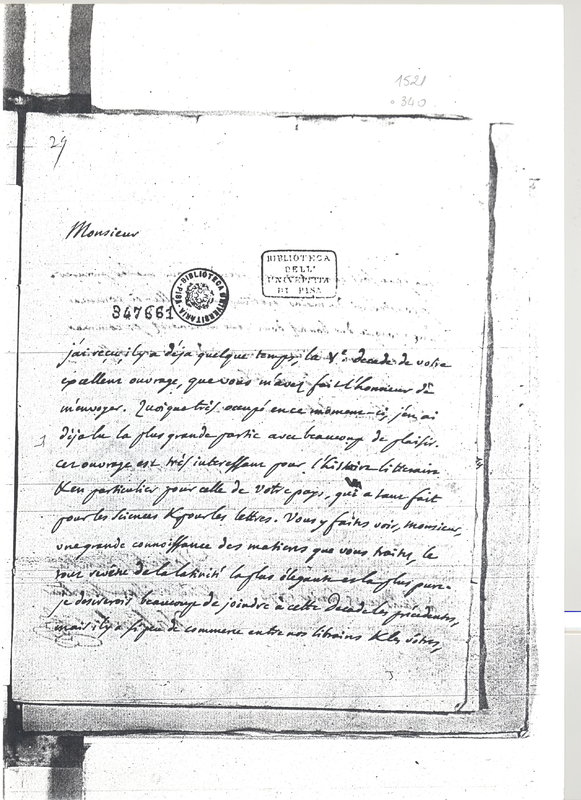 1521
340
29
Monsieur
BIBLIOTECA
DELL'
UNIVERSITA
DI PISA
BIBLIOTECA UNIVERSITARIA · PISA ·
347661
j'ai reçu, il y a déja quelque temps, la Ve. decade de votre
excellent ouvrage, que vous m'avez fait l'honneur de
m'envoyer. Quoique très occupé en ce moment-ci, j'en ai
déja lu la plus grande partie avec beaucoup de plaisir.
Cet ouvrage est très interessant pour l'histoire litteraire
& en particulier pour celle de votre pays, qui a tant fait
pour les sciences & pour les lettres. Vous y faites voir, monsieur,
une grande connoissance des matieres que vous traites, le
tout revêtu de la latinité la plus élégante et la plus pure.
je desirerois beaucoup de joindre à cette Decade les précédentes,
mais il y a si peu de commerce entre nos libraires & les vôtres,